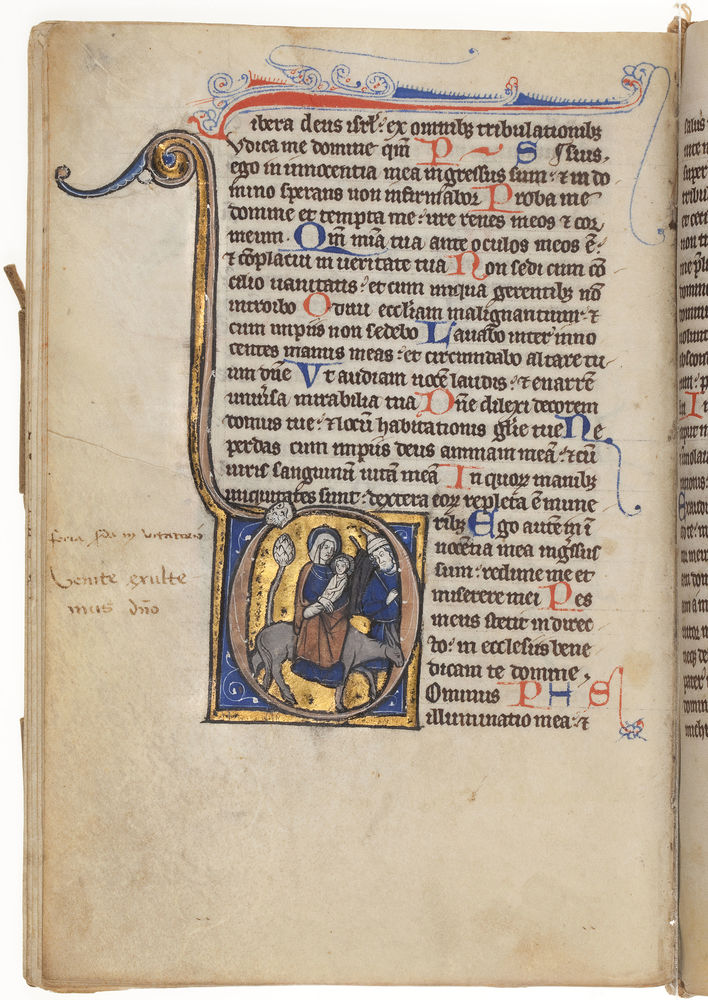 ibera deus isrl' ex omnibꝫ tribulationibꝫ
ydica me domine qm̄ P S Ipsius.
ego in innocentia mea ingressus sum: ⁊ in do
mino sperans non infirmabor Proba me
domine et tempta me: ure renes meos ⁊ cor
meum. Qm̄ mīa tua ante oculos meos ē:
⁊ cōplacui in ueritate tua Non sedi cum cō
silio uanitatis: et cum iniqua gerentibꝫ nō
introibo Odiui eccl'iam malignantium: ⁊
cum impiis non sedebo Lauabo inter inno
centes manus meas: et circumdabo altare tu
um dn̄e Vt audiam uocē laudis: ⁊ enarrē
uniu'sa mirabilia tua Dn̄e dilexi decorem
domus tue: ⁊ locū habitationis gl'ie tue Ne
perdas cum impiis deus animam meā: ⁊ cū
uiris sanguinū uitā meā In quoꝝ manibꝫ
iniquitates sunt: dextera eoꝝ repleta ē mune
ribꝫ Ego autē in ī
nocentia mea ing̃ssus
sum: redime me et
miserere mei Pes
meus stetit in direc
to: in ecclesiis bene
dicam te domine.
Ominus P H S
illuminatio mea: ⁊
feria in
Venite exulte
mus dn̄o